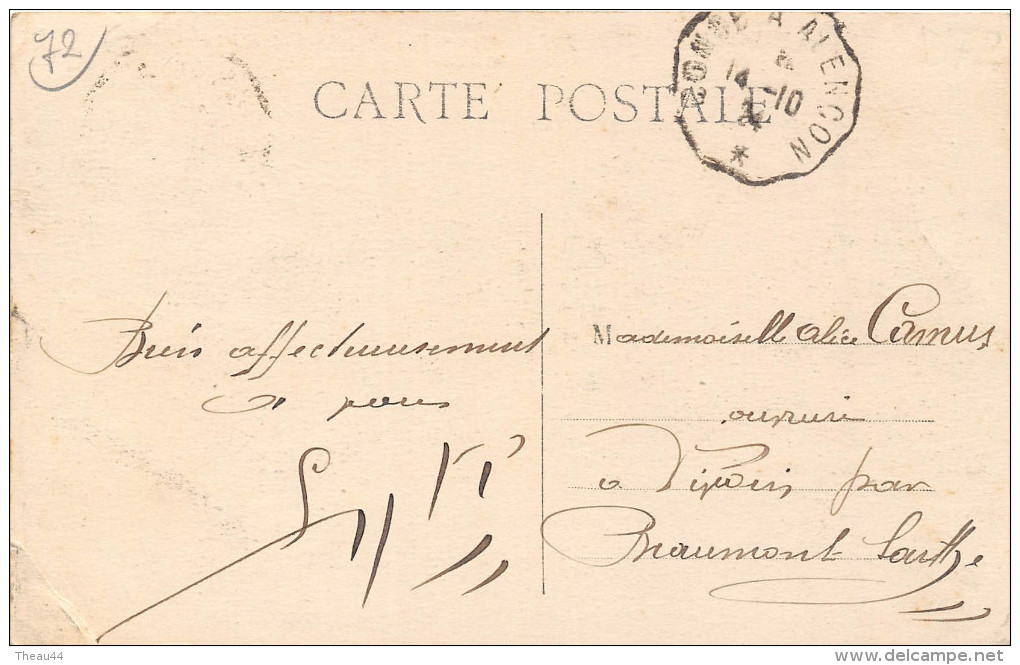 72
CARTE POSTALE
CONDÉ A ALENCON
14 -10
*
Bien affectueusement
a vous
Mademoiselle Alice Camus
à Vivoin par
Beaumont Sarthe
Theau44
www.delcampe.net